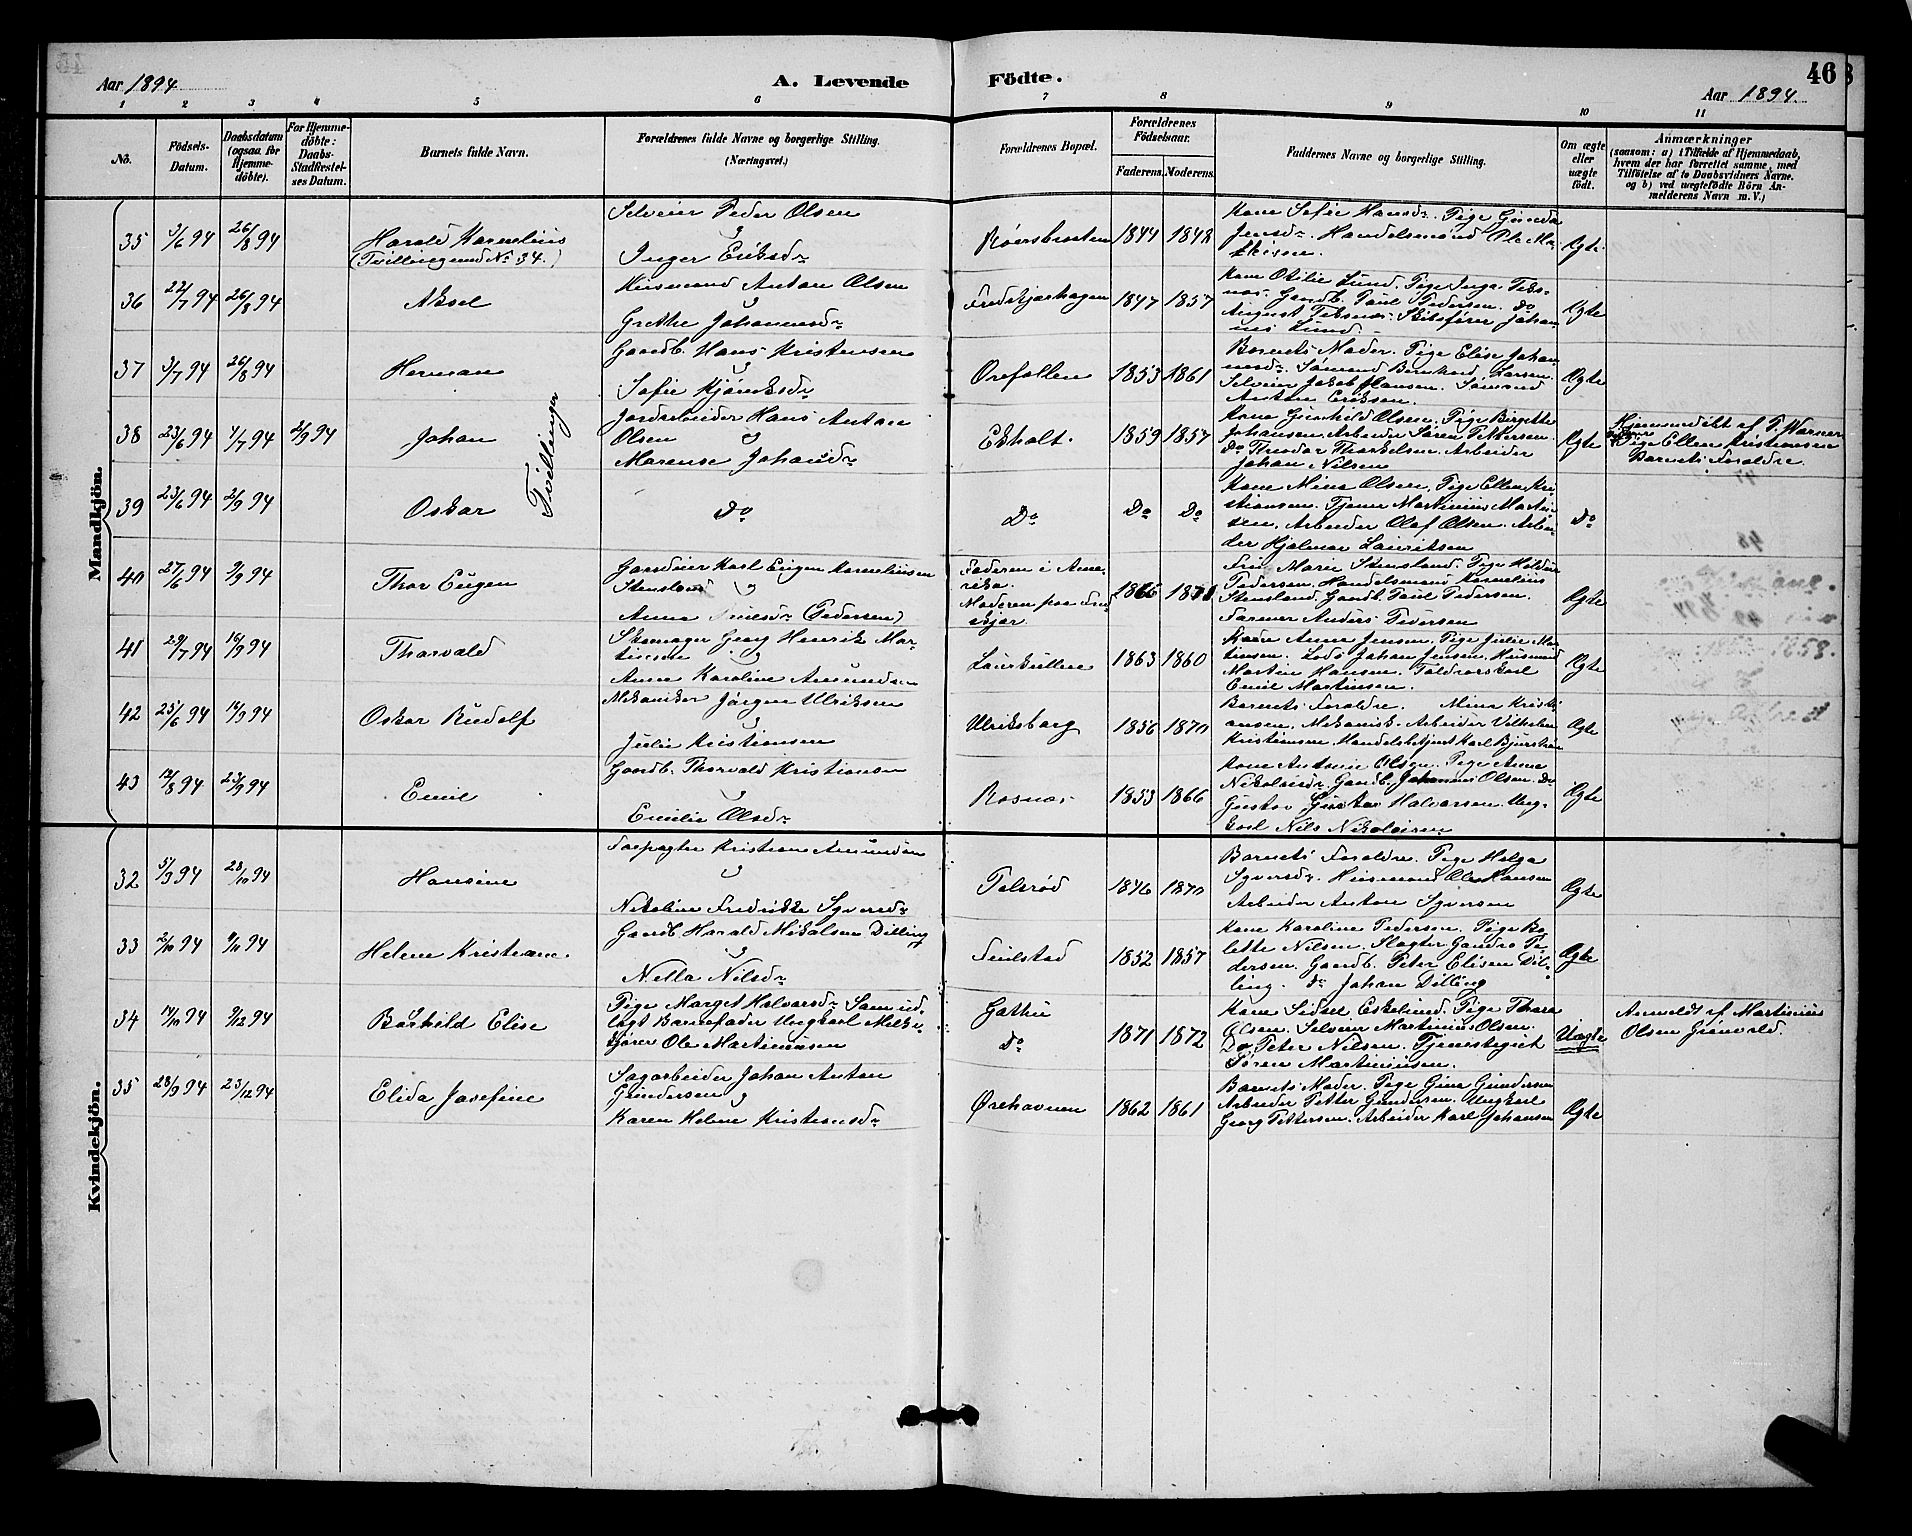 Aar 1894 A. Levende Födte. Aar 1894. 46
1 2 3 4 5 6 7 8 9 10 11
No.
Födsels-
Datum.
Daabsdatum
(ogsaa for
Hjemme-
döbte).
For Hjemme-
döbte:
Daabs-
Stadfæstel-
ses Datum.
Barnets fulde Navn.
Forældrenes fulde Navne og borgerlige Stilling.
(Næringsvei.)
Forældrenes Bopæl.
Forældrenes
Födselsaar.
Faderens. Moderens.
Faddernes Navne og borgerlige Stilling.
Om ægte
eller
uægte
födt.
Anmærkninger
(saasom: a) i Tilfælde af Hjemmedaab,
hvem der har forrettet samme, med
Tilföielse af to Daabsvidners Navne.
og b) ved uægtefödte Börn An-
melderens Navn m. V.)
Mandkjön.
35 3/6 94 26/8 94
Harald Kornelius
(Tvilling med No 34.)
Selveier Peder Olsen
Inger Eriksdr
1844 1848
Kone Sofie Hansdr. Pige Gunda
Jensdr. Handelsmand Ole Ma-
Ægte
36 22/7 94 26/8 94
Aksel
Husmand Anton Olsen
og
Grethe Johannesdr
Fredskjærhagen 1847 1857
Kone Otilie Lund. Pige Inga
Gaardb. Paul Pedersen. do
August
Johan-
nes Lund.
Ægte
37 3/7 94 26/8 94
Herman
Gaardb. Hans Kristensen
og
Sofie
Orefallen 1853 1861
Barnets Moder. Pige Elise Johan-
nesdr. Sömand Bernhard Larsen.
Selveier Jakob Hansen. Sömand
Anton Eriksen.
Ægte
38 23/6 94 1/7 94 2/9 94
Johan
Tvillinger
Jordarbeider Hans Anton
Olsen og
Marense Johansdr
Ekholt. 1859 1857
Kone Gunhild Olsen. Pige Birgitte
Johansen. Arbeider Sören Pettersen.
Do Theodor Thorkelsen. Arbeider
Johan Nilsen
Ægte
Hjemmedöbt af
Pige Ellen Kristiansen
Barnets Forældre.
39 23/6 94 2/9 94
Oskar
Do
Do Do Do
Kone Mina Olsen. Pige Ellen Kri-
stiansen. Tjener Martinius Martin-
sen. Arbeider Olaf Olsen. Arbei-
der Hjalmar Lauritsen
Do
40 27/6 94 9/9 94
Thor Eugen
Gaardeier Karl Eugen Kornelius
Stensland og
Anna (Pedersen)
Faderen i Ame-
rika.
Moderen paa Fred
skjær.
1865
Fru Marie Stensland. Pige Hilda
Pedersen. Handelsmand Kornelius
Stensland. Gaardb. Paul Pedersen.
Farmer Anders Pedersen
Ægte
41 29/7 94 16/9 94
Thorvald
Skomager Georg Henrik Mar-
tinsen og
Anna Karoline Amundsen
Laurkullen 1863 1860
Kone Anna Jensen. Pige Julie Mar-
tinsen. Lods Johan Jensen. Husmand
Martin Hansen.
Emil Martinsen.
Ægte
42 25/6 94 16/9 94
Oskar Rudolf
Mekaniker Jörgen Ulriksen
og
Julie Kristiansen
Ulriksborg 1856 1870
Barnets Forældre. Mina Kristi-
ansen. Mekanisk Arbeider Vilhelm
Kristiansen. Handelsbetjent Karl
Ægte
43 12/8 94 23/9 94
Emil
Gaardb. Thorvald Kristiansen
og
Emilie Olsdr
Rosnæs 1853 1866
Kone Antonie Olsen. Pige Anne
Nikolaisdr. Gaardb. Johannes Olsen. Do
Gustav Halvorsen. Ung-
karl Nils Nikolaisen
Ægte
Kvindekjön.
32 5/9 94 28/10 94
Hansine
Forpagter Kristian Amundsen
og
Nikoline Fredrikke Syversdr
Tolsröd 1846 1870
Barnets Forældre. Pige Helga
Syversdr. Husmand Ole Hansen
Arbeider Anton Syversen
Ægte
33 2/10 94 4/11 94
Helene Kristiane.
Gaardb. Harald Mikalsen Dilling
og
Nella Nilsdr
1852 1857
Kone Karoline Pedersen. Pige Bo-
lette Nilsen. Slagter Pe-
dersen. Gaardb. Peter Elisen Dil-
ling. Do Johan Dilling
Ægte
34 14/10 94 9/12 94
Borghild Elise
Pige Marget Halvorsdr Som ud-
lagt Barnefader Ungkarl Melke-
kjörer Ole Martiniusen
Gathu
Do
1871 1872
Kone Sidsel Eskelund. Pige Thora
Olsen. Selveier Martinius Olsen.
Do Peter Nilsen. Tjenestegut
Sören Martiniusen.
Uægte
Anmeldt af Martinius
Olsen Grönvold.
35 28/9 94 23/12 94
Elida Josefine
Sagarbeider Johan Anton
Gundersen og
Karen Helene Kristiansdr
Ørehavnen 1862 1861
Barnets Moder. Pige Gina Gundersen
Arbeider Petter Gundersen. Ungkarl
Georg Pettersen. Arbeider Karl Johansen
Ægte